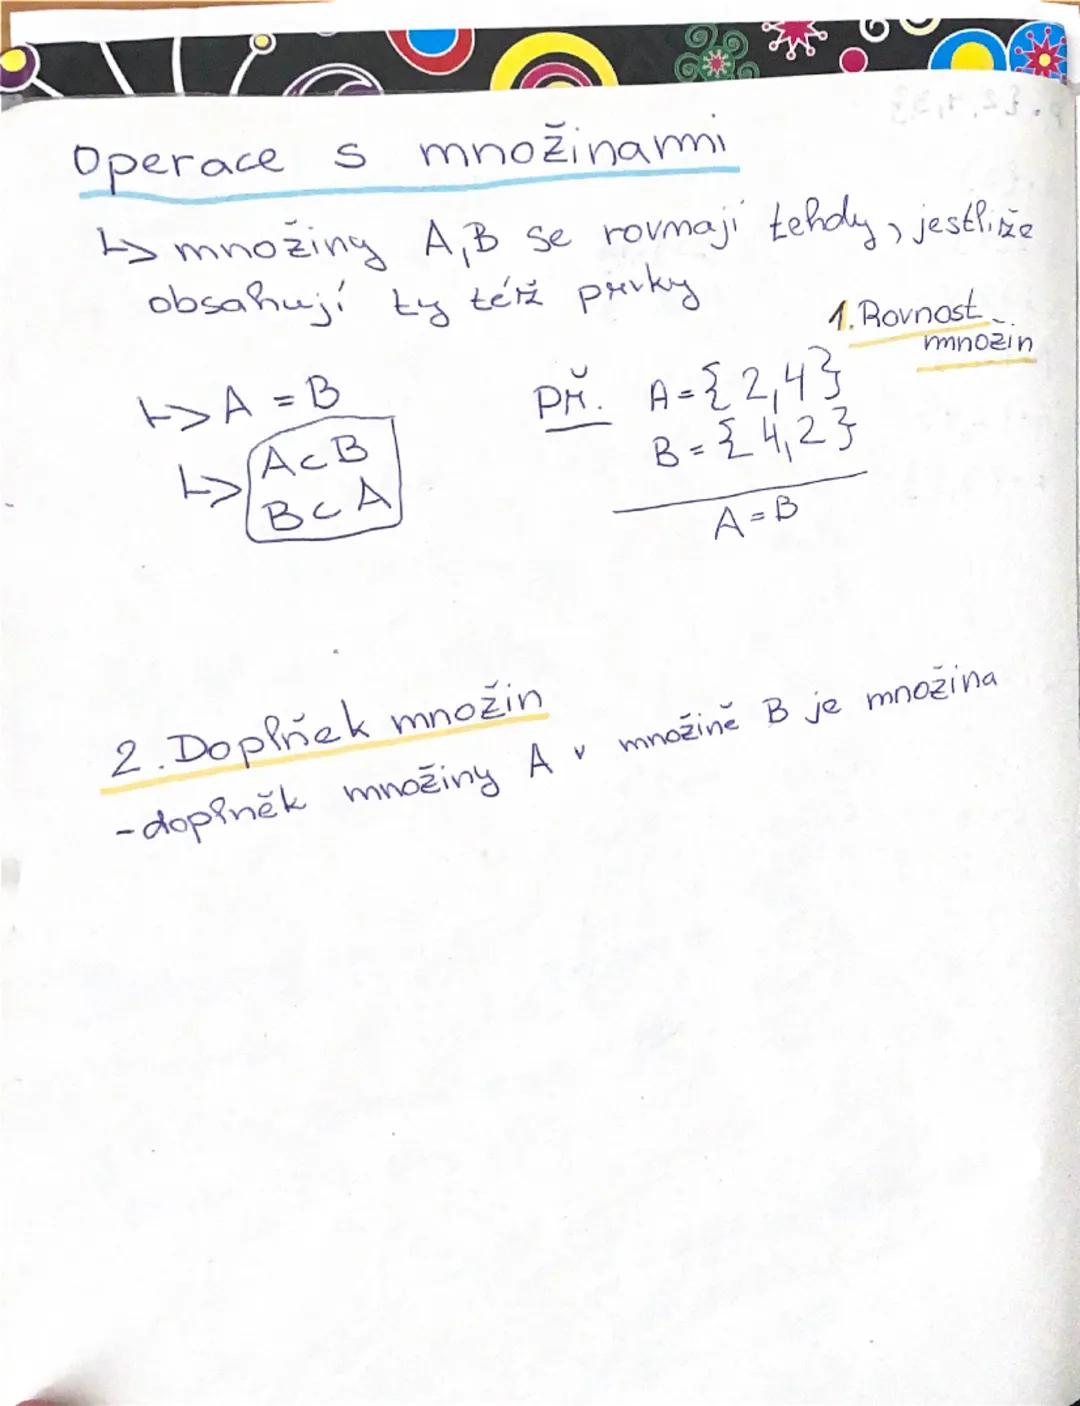 Operace s množinami
↳ množiny A,B se rovnají tehdy, jestliže
obsahují ty též prvky
1. Rovnost
množin
↳ A = B
↳ A⊂B
B⊂A
PŘ. A={2,4}
B={4,2}
A=B
2. Doplňek množin
-doplněk množiny A v množině B je množina